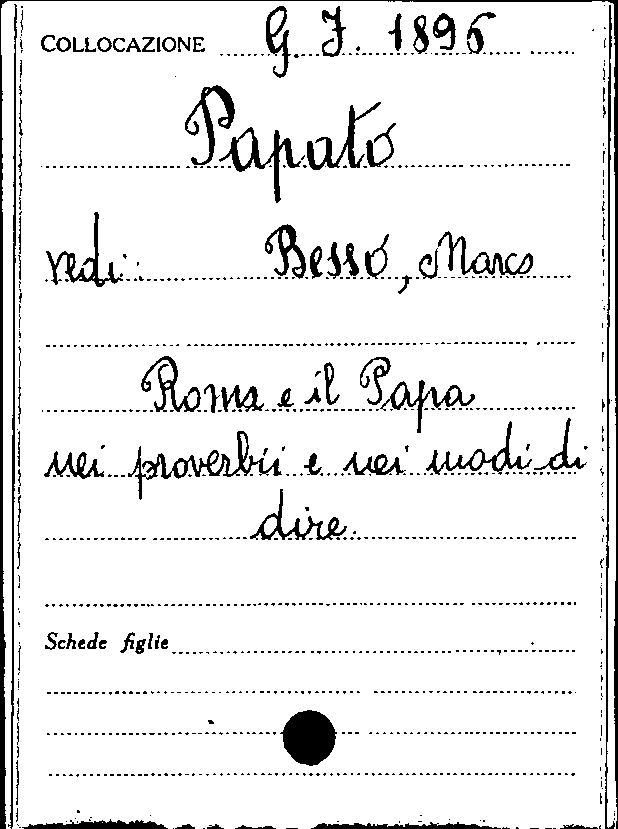 COLLOCAZIONE G. J. 1896
Papato
vedi: Besso, Marco
Roma e il Papa
nei proverbii e nei modi di
dire.
Schede figlie